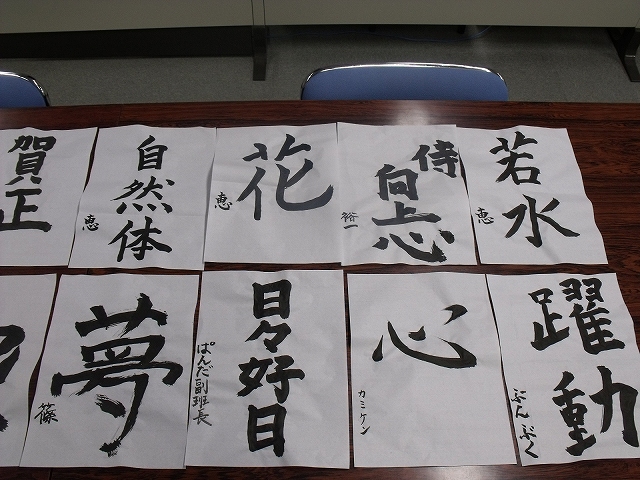 賀正
自然体
恵
花
恵
侍
向上心
裕一
若水
恵
夢
篠
日々好日
ぱんだ副班長
心
カミケン
躍動
ぶんぶく